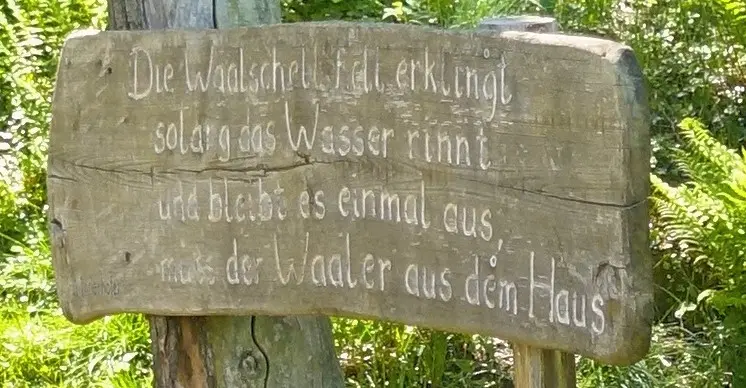 Die Waalschell hell erklingt
solang das Wasser rinnt
und bleibt es einmal aus,
muss der Waaler aus dem Haus